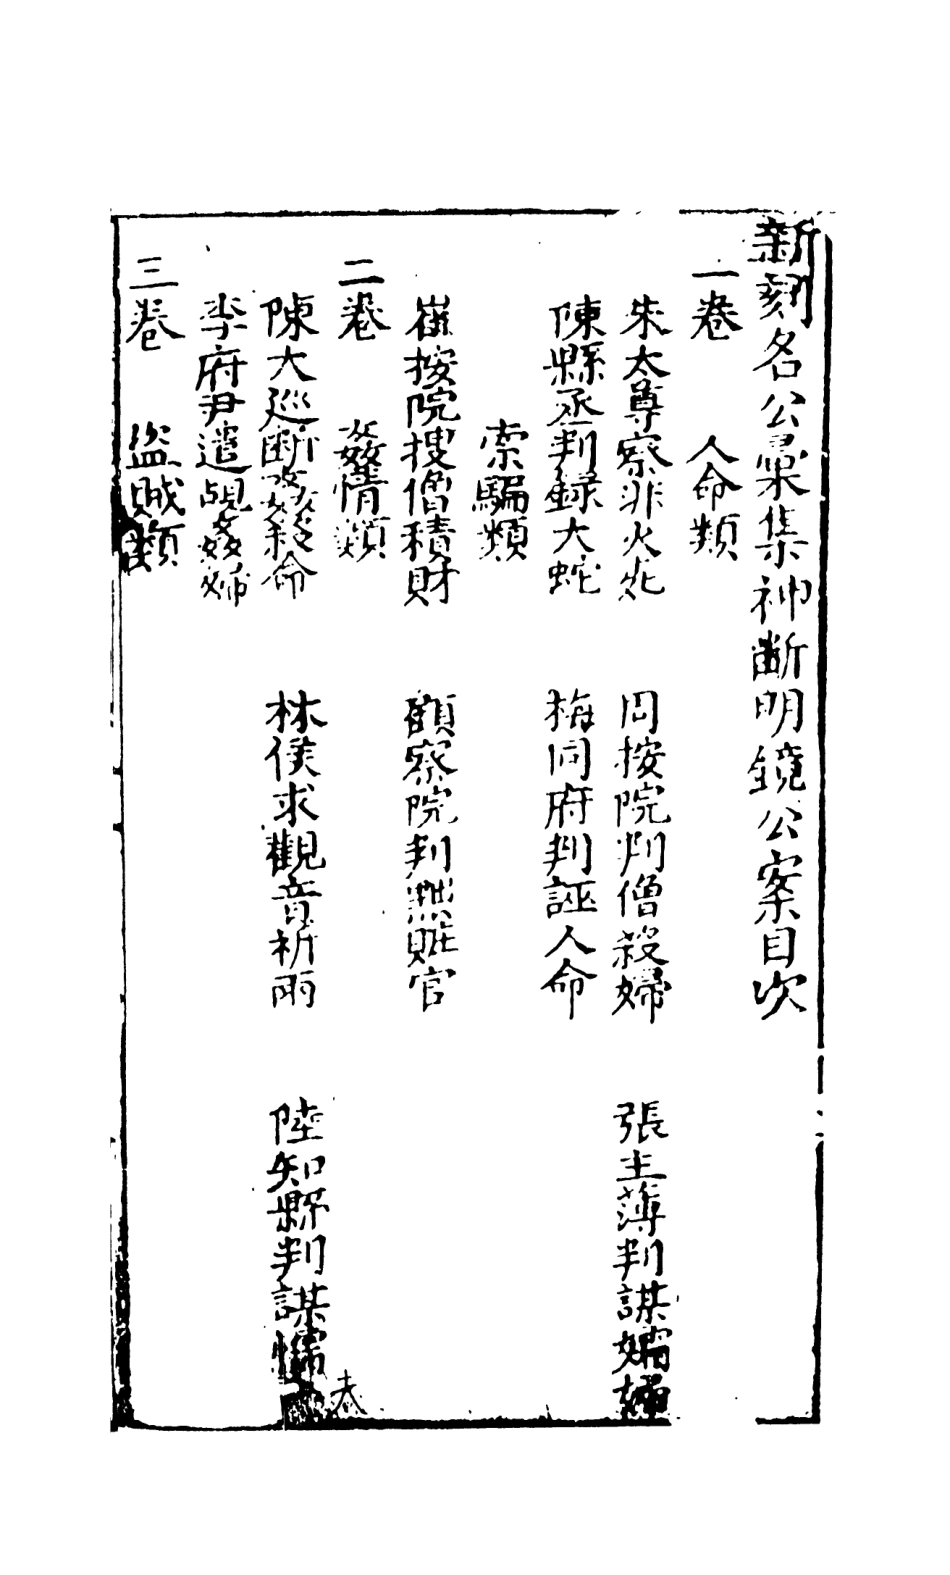 新刻名公彙集神斷明鏡公案目次
一卷 人命類
朱太尊察非火死 周按院判僧殺婦 張主薄判謀孀婦
陳縣丞判錄大蛇 梅同府判誣人命
索騙類
崔按院搜僧積財 顧察院判黜贓官
二卷 姦情類
陳大巡斷姦殺命 林侯求觀音祈雨 陸知縣判謀懦
李府尹遣覘姦婦
三卷 盜賊類